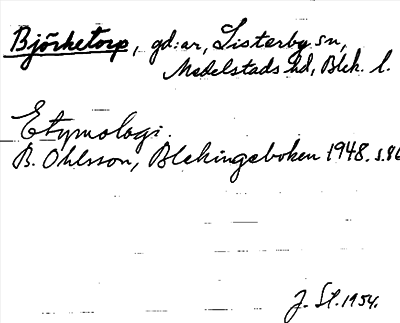 Björketorp, gd:ar, Listerby sn,
Medelstads hd, Blek. l.
Etymologi.
B. Ohlsson, Blekingeboken 1948. s. 86
J. St. 1954.